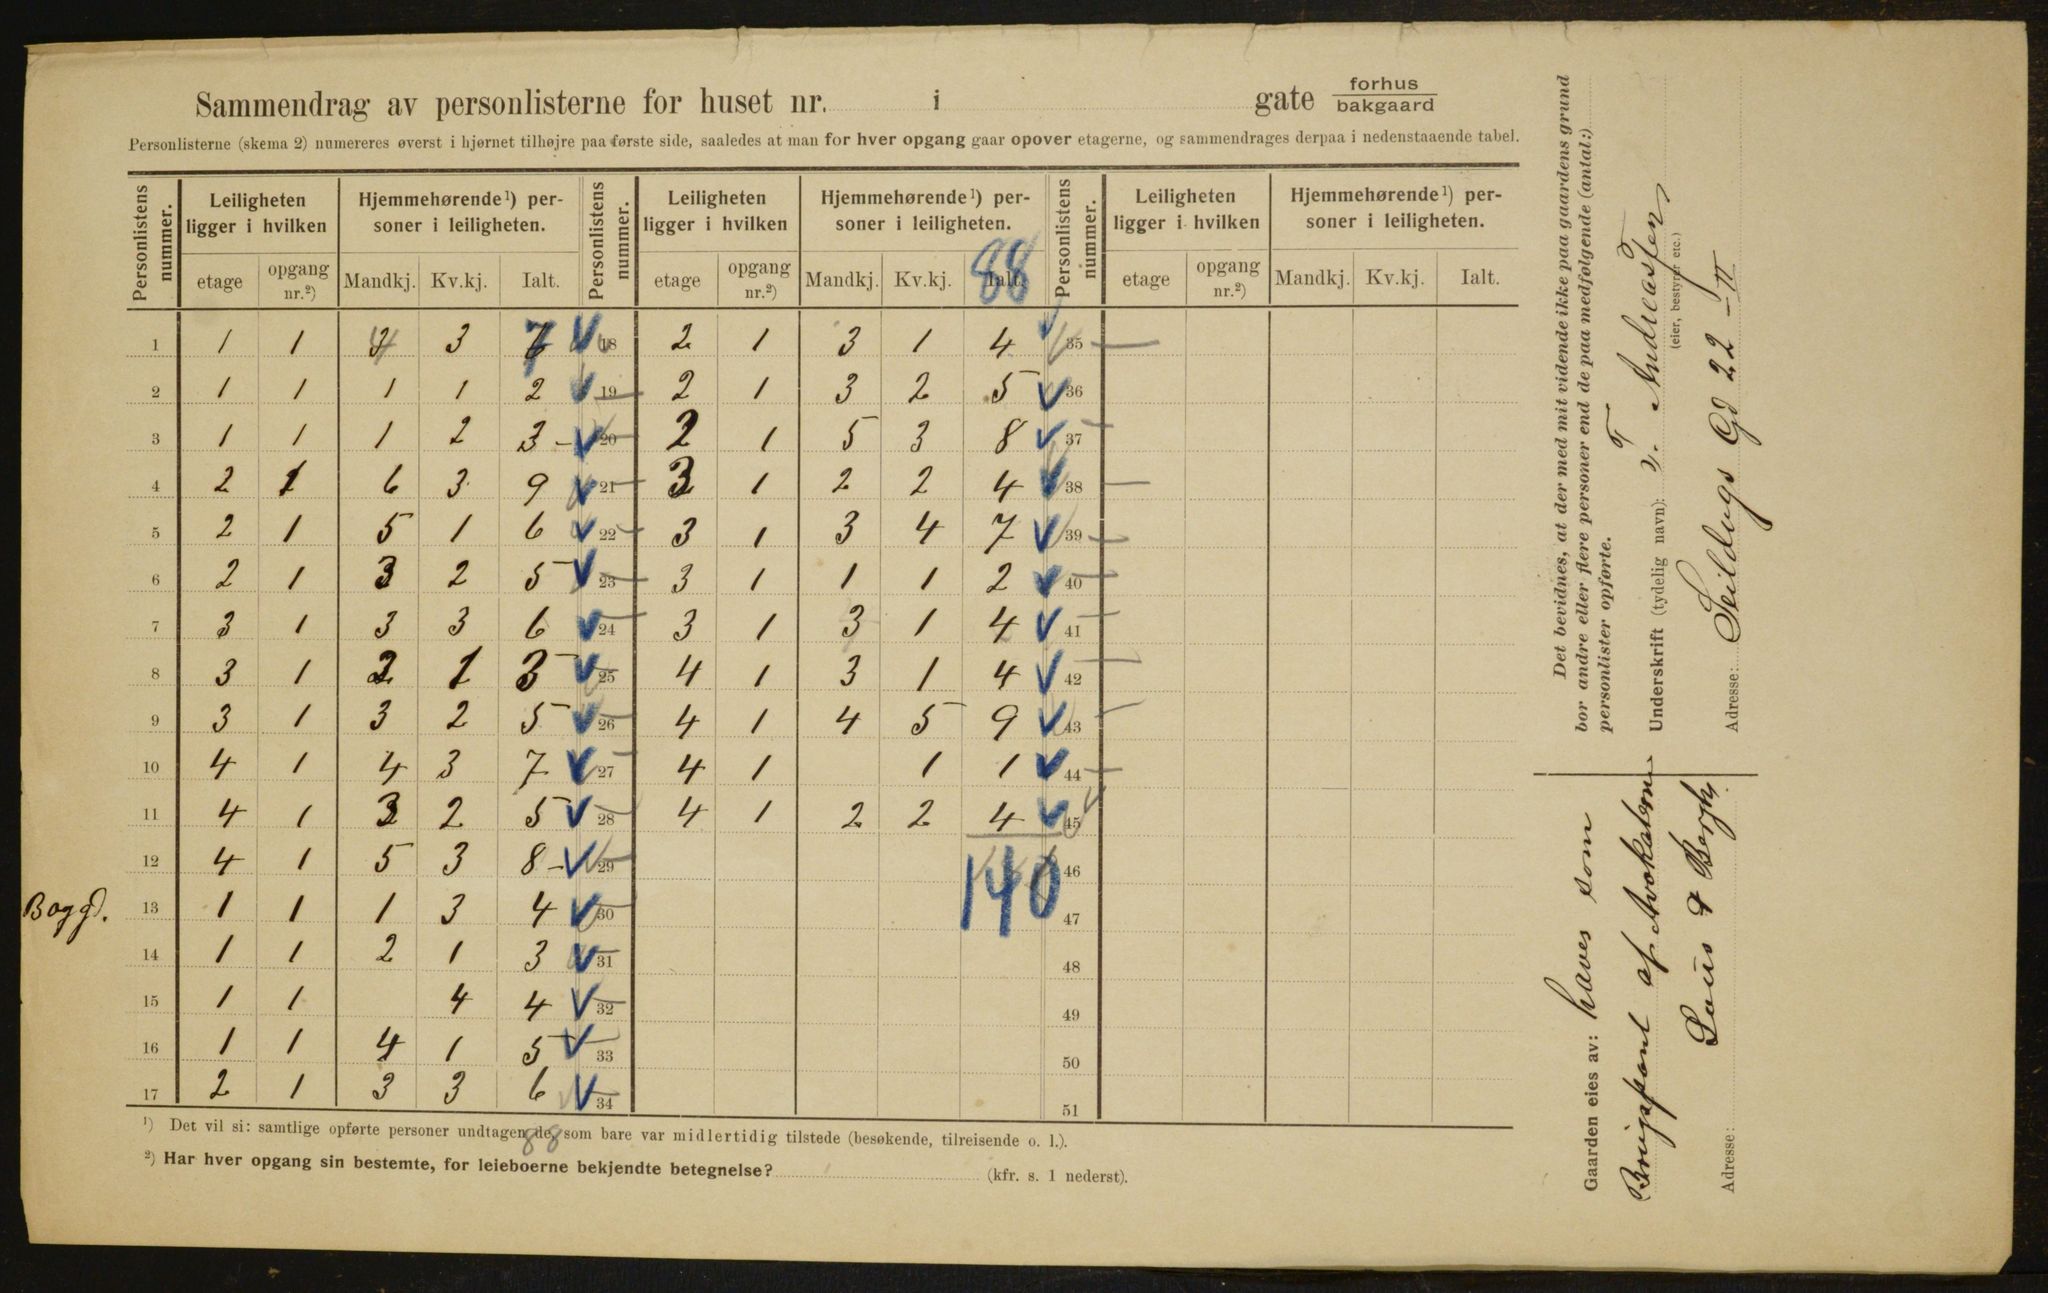 Sammendrag av personlisterne for huset nr. i gate forhus
bakgaard
Personlisterne (skema 2) numereres øverst i hjørnet tilhøjre paa første side, saaledes at man for hver opgang gaar opover etagerne, og sammendrages derpaa i nedenstaaende tabel.
Personlistens nummer. Leiligheten ligger i hvilken Hjemmehørende¹) personer i leiligheten. Personlistens nummer. Leiligheten ligger i hvilken Hjemmehørende¹) personer i leiligheten. Personlistens nummer. Leiligheten ligger i hvilken Hjemmehørende¹) personer i leiligheten.
88
etage opgang nr.²) Mandkj. Kv.kj. Ialt. etage opgang nr.²) Mandkj. Kv.kj. Ialt. etage opgang nr.²) Mandkj. Kv.kj. Ialt.
1 1 1 4 3 7 18 2 1 3 1 4 35
2 1 1 1 1 2 19 2 1 3 2 5 36
3 1 1 1 2 3 20 2 1 5 3 8 37
4 2 1 6 3 9 21 3 1 2 2 4 38
5 2 1 5 1 6 22 3 1 3 4 7 39
6 2 1 3 2 5 23 3 1 1 1 2 40
7 3 1 3 3 6 24 3 1 3 1 4 41
8 3 1 2 1 3 25 4 1 3 1 4 42
9 3 1 3 2 5 26 4 1 4 5 9 43
10 4 1 4 3 7 27 4 1 1 1 44
11 4 1 3 2 5 28 4 1 2 2 4 45
12 4 1 5 3 8 29 140 46
Baggd. 13 1 1 1 3 4 30 47
14 1 1 2 1 3 31 48
15 1 1 4 4 32 49
16 1 1 4 1 5 33 50
17 2 1 3 3 6 34 51
88
¹) Det vil si: samtlige opførte personer undtagen de, som bare var midlertidig tilstede (besøkende, tilreisende o. l.).
²) Har hver opgang sin bestemte, for leieboerne bekjendte betegnelse? (kfr. s. 1 nederst).
Det bevidnes, at der med mit vidende ikke paa gaardens grund
bor andre eller flere personer end de paa medfølgende (antal:)
personlister opførte.
Underskrift (tydelig navn): T. Andreasen
(eier, bestyrer etc.)
Adresse: Seildugs Gd 22 II
Gaarden eies av: haves som
Brugspant af Advokaterne
&
Adresse: